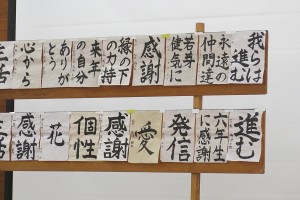 我らは進む
永遠の仲間達
若芽
健気に
感謝
縁の下の力持
来年の自分
ありがとう
心から
生活
進む
六年生に感謝
発信
愛
感謝
個性
花
感謝